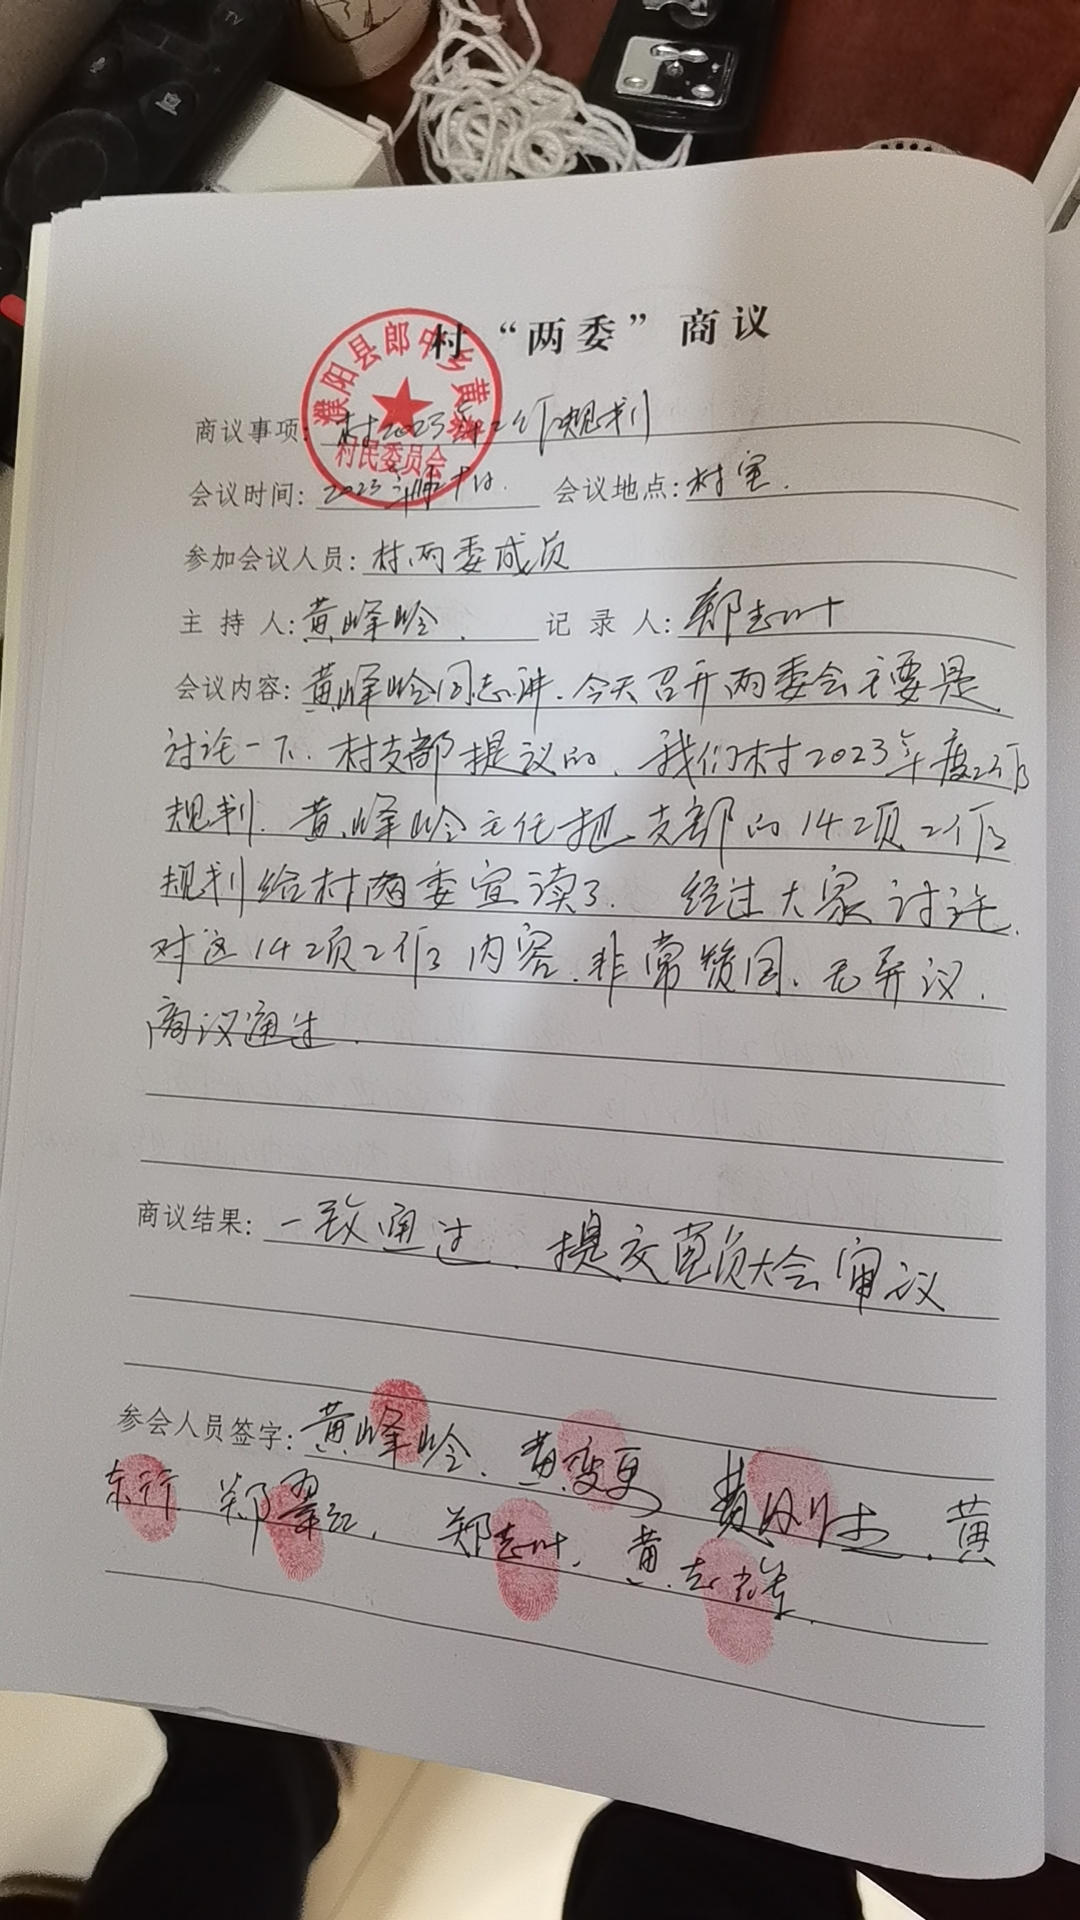 村“两委”商议
濮阳县郎中乡黄寨
村民委员会
商议事项: 村2023年工作规划
会议时间: 2023年 十日. 会议地点: 村室.
参加会议人员: 村两委成员
主持人: 黄峰岭. 记录人: 郑志叶
会议内容: 黄峰岭同志讲.今天召开两委会主要是
讨论一下.村支部提议的.我们村2023年度工作
规划.黄峰岭主任把支部的14项工作
规划给村两委宣读了.经过大家讨论.
对这14项工作内容.非常赞同.无异议.
商议通过.
商议结果: 一致通过.提交党员大会审议
参会人员签字: 黄峰岭.黄变更 黄刚士.黄
东行 郑翠红.郑志叶.黄志
TV